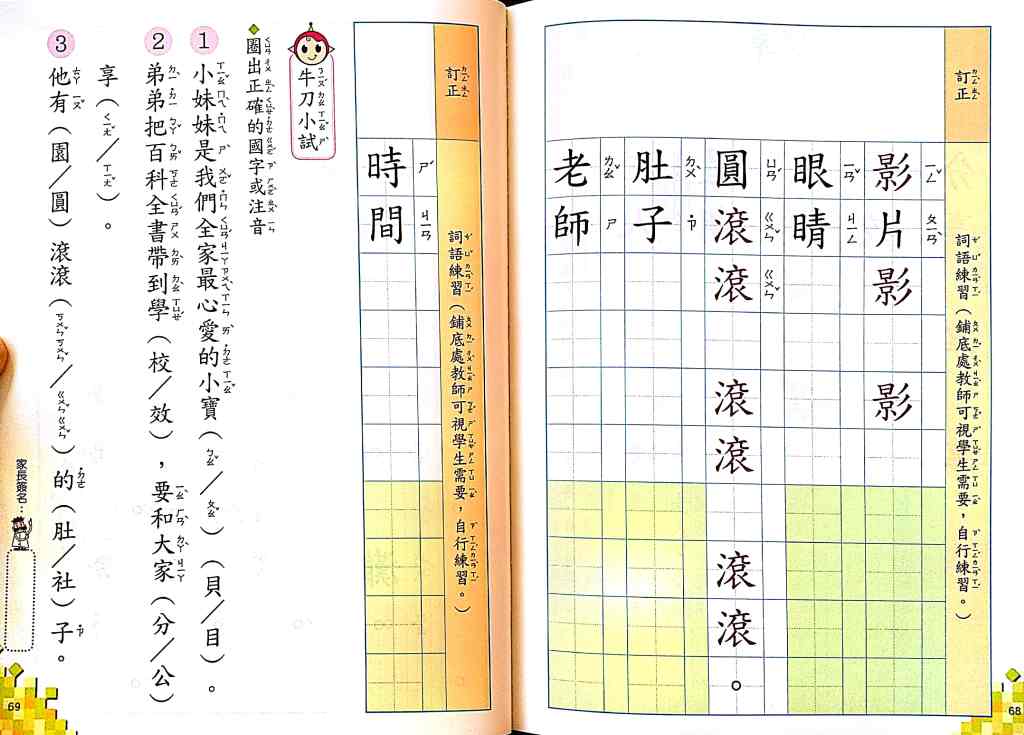 訂正
詞語練習（鋪底處教師可視學生需要，自行練習。）
影片影影
眼睛
圓滾滾滾滾滾滾。
肚子
老師
68
訂正
詞語練習（鋪底處教師可視學生需要，自行練習。）
時間
牛刀小試
圈出正確的國字或注音
1 小妹妹是我們全家最心愛的小寶（ㄅㄠˇ／ㄆㄠˇ）（貝／目）。
2 弟弟把百科全書帶到學（校／效），要和大家（分／公）
享（ㄑㄧㄤˇ／ㄒㄧㄤˇ）。
3 他有（園／圓）滾滾（ㄗㄨㄣˇㄗㄨㄣˇ／ㄍㄨㄣˇㄍㄨㄣˇ）的（肚／社）子。
家長簽名：
69